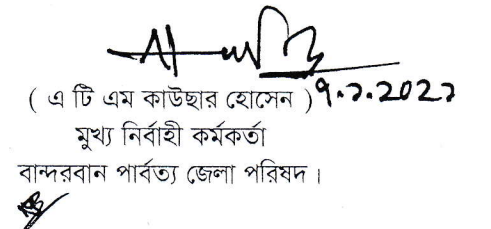 ( এ টি এম কাউছার হোসেন ) ৭.১.২০২১
মুখ্য নির্বাহী কর্মকর্তা
বান্দরবান পার্বত্য জেলা পরিষদ ।